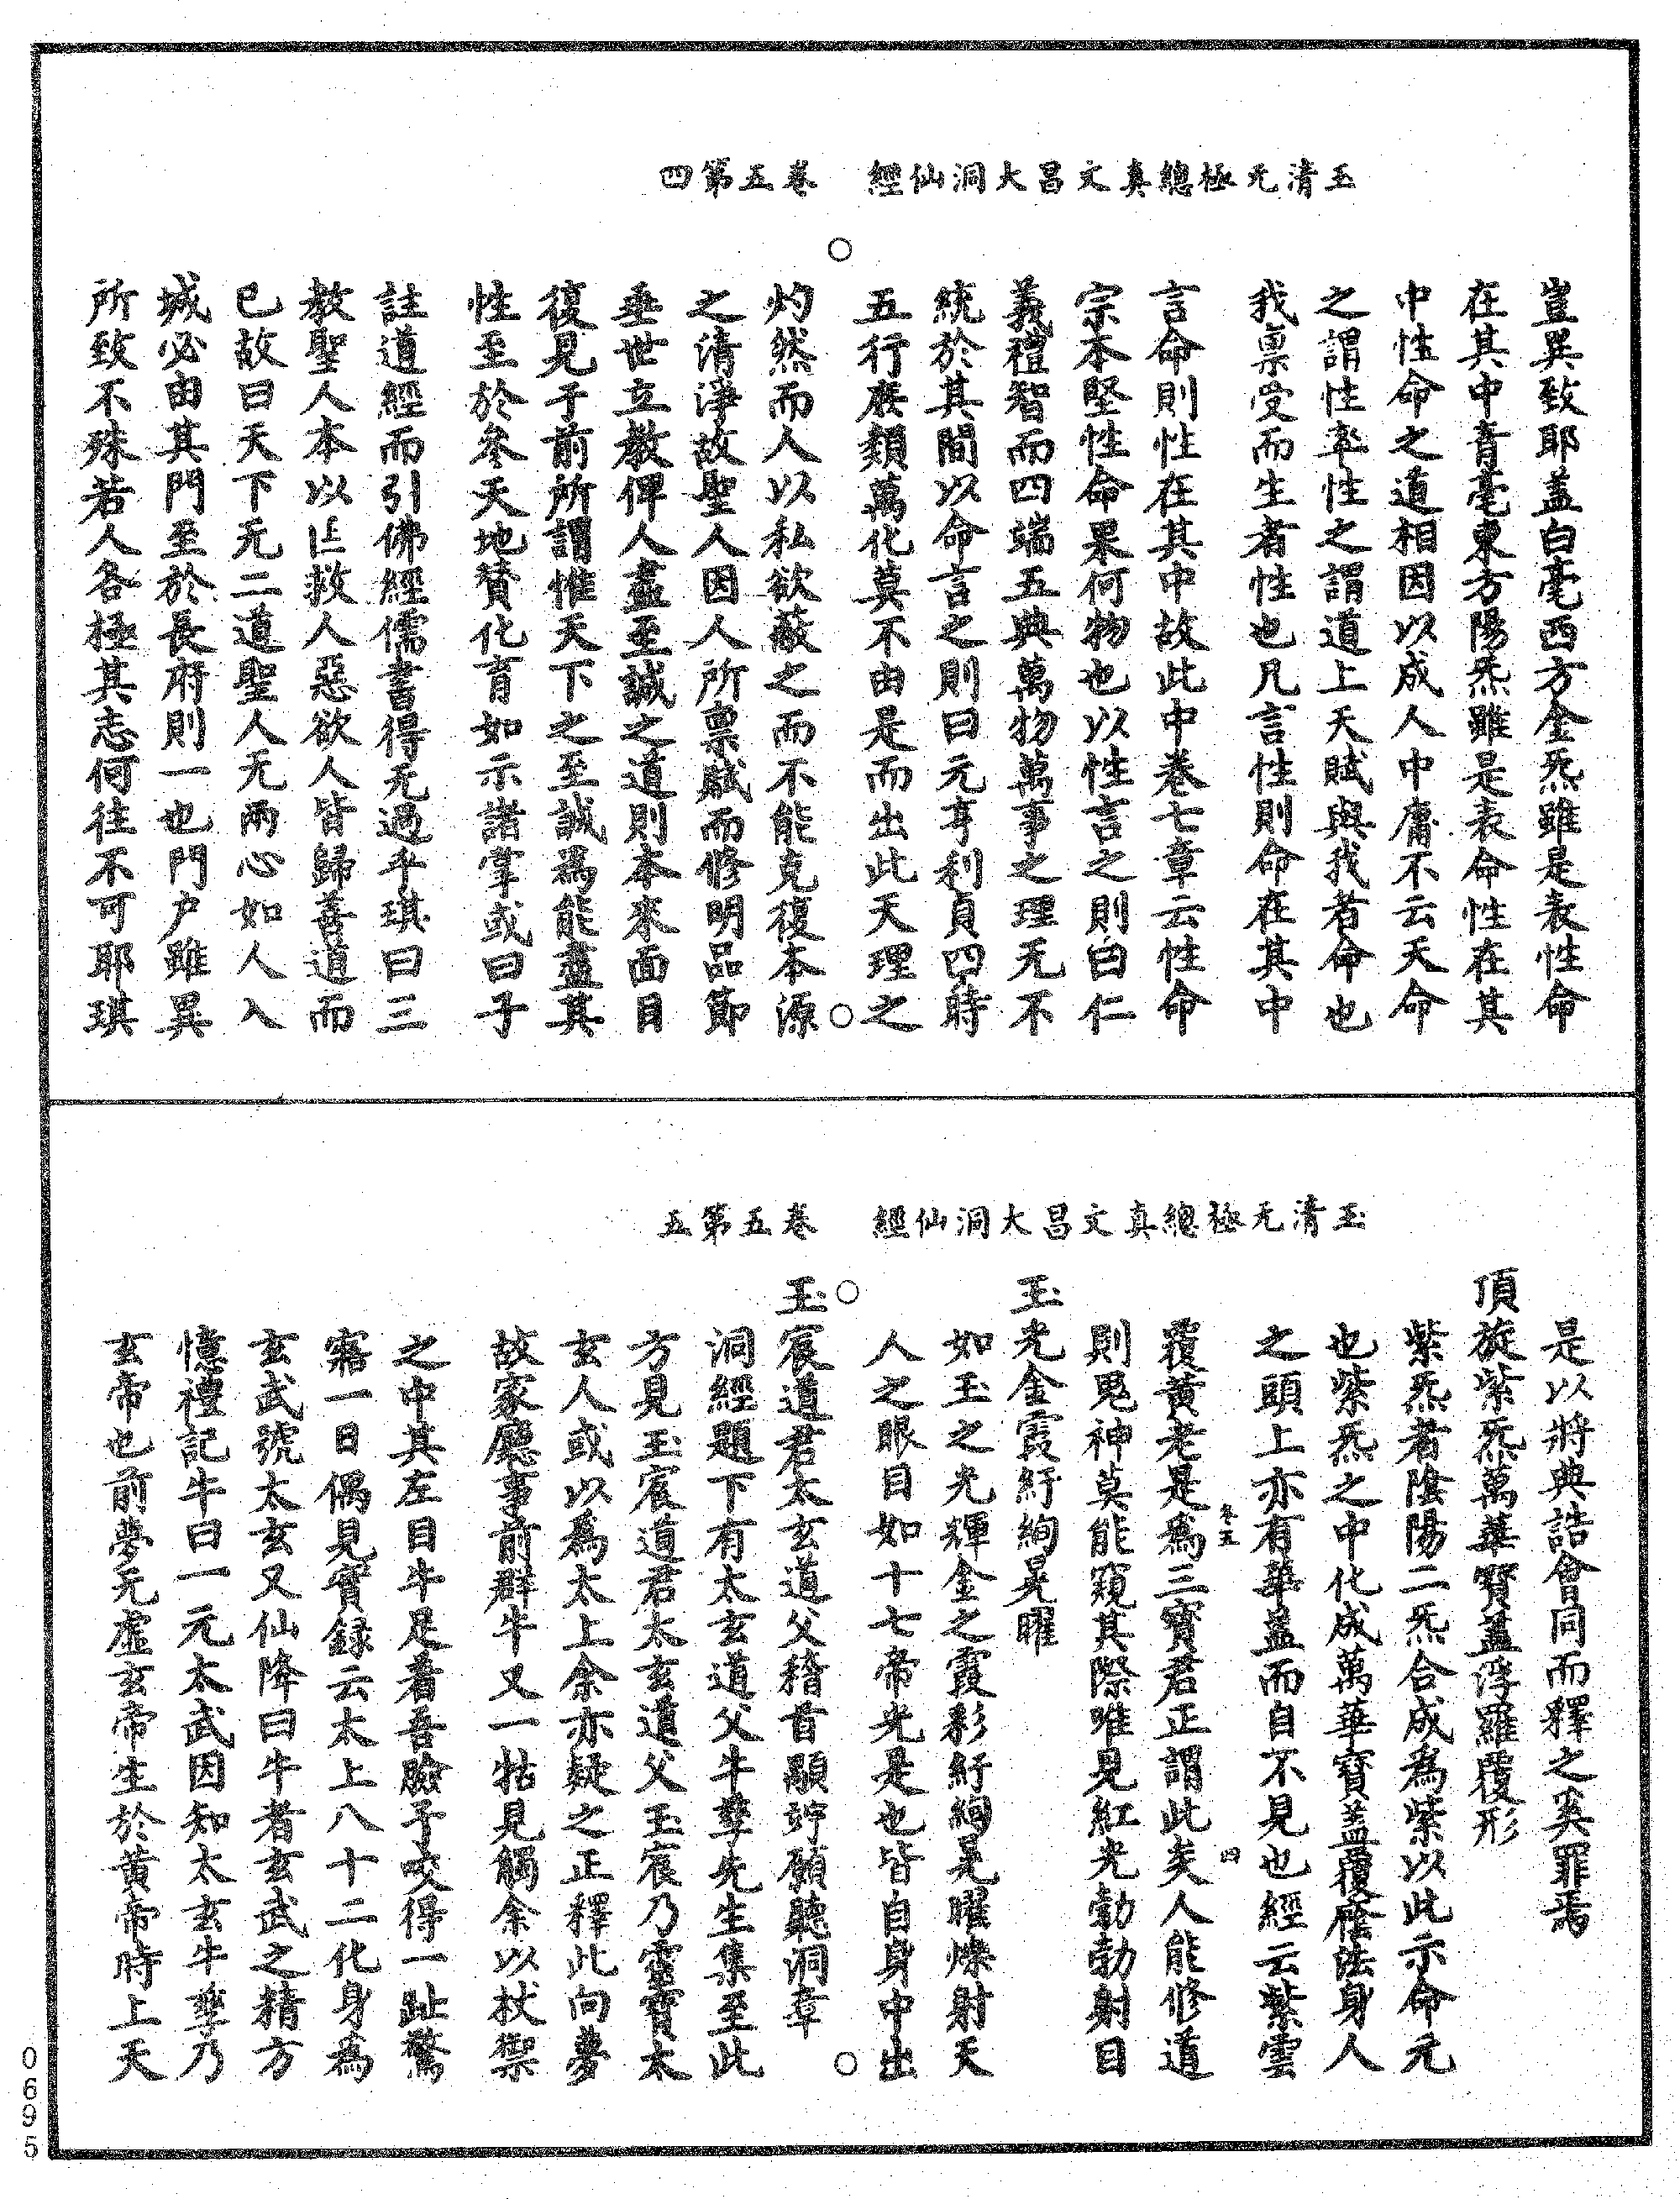 玉清无極總真文昌大洞仙經　卷五第四
豈異致耶蓋白毫西方金炁雖是表性命
在其中青毫東方陽炁雖是表命性在其
中性命之道相因以成人中庸不云天命
之謂性率性之謂道上天賦與我者命也
我禀受而生者性也凡言性則命在其中
言命則性在其中故此中卷七章云性命
宗本堅性命果何物也以性言之則曰仁
義禮智而四端五典萬物萬事之理无不
統於其間以命言之則曰元亨利貞四時
五行庶類萬化莫不由是而出此天理之
灼然而人以私欲蔽之而不能克復本源
之清淨故聖人因人所禀賦而修明品節
垂世立教俾人盡至誠之道則本來面目
復見于前所謂惟天下之至誠為能盡其
性至於參天地贊化育如示諸掌或曰子
註道經而引佛經儒書得无過乎琪曰三
教聖人本以匡救人惡欲人皆歸善道而
已故曰天下无二道聖人无兩心如人入
城必由其門至於長府則一也門户雖異
所致不殊若人各極其志何往不可耶琪
玉清无極總真文昌大洞仙經　卷五第五
是以將與誥會同而釋之奚罪焉
頂旋紫炁萬華寶蓋浮羅覆形
紫炁者陰陽二炁合成為紫以此示命元
也紫炁之中化成萬華寶蓋覆廕法身人
之頭上亦有華蓋而自不見也經云紫雲
卷五　四
覆黃老是為三寶君正謂此矣人能修道
則鬼神莫能窺其際唯見紅光勃勃射目
玉光金霞紆絢晃曜
如玉之光輝金之霞彩紆絢晃曜爍射天
人之眼目如十七帝光是也皆自身中出
玉宸道君太玄道父稽首顒竚願聽洞章
洞經題下有太玄道父牛孳先生集至此
方見玉宸道君太玄道父玉宸乃靈寶太
玄人或以為太上余亦疑之正釋此向夢
故家廳事前群牛又一牯見觸余以杖禦
之中其左目牛足着吾臉予咬得一趾驚
寤一日偶見實録云太上八十二化身為
玄武號太玄又仙降曰牛者玄武之精方
憶禮記牛曰一元太武因知太玄牛孳乃
玄帝也前夢无虛玄帝生於黃帝時上天
0695